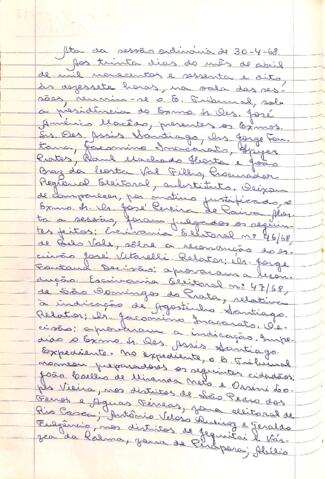 Ata da sessão ordinária de 30-4-68.
Aos trinta dias do mês de abril
de mil novecentos e sessenta e oito,
às dezessete horas, na sala das ses-
sões, reuniu-se o E. Tribunal, sob
a presidência do Exmo. Sr. Des. José
Américo Macêdo, presentes os Exmos.
Srs. Des. Assis Santiago, Drs. Jorge Fon-
tana, Jacomino Inacarato,
Pratos, Raul Machado Horta e João
Braz da Costa Val Filho, Procurador
Regional Eleitoral, substituto. Deixou
de comparecer, por motivo justificado, o
Exmo. Sr. Dr. José Pereira de Paiva. Aber-
ta a sessão, foram julgados os seguin-
tes feitos: Escrivania Eleitoral nº 46/68,
de Belo Vale, sôbre a recondução do es-
crivão José Vitarelli. Relator: Dr. Jorge
Fontana. Decisão: aprovaram a recon-
dução. Escrivania eleitoral nº 47/68,
de São Domingos do Prata, relativa
à indicação de Agostinho Santiago.
Relator: Dr. Jacomino Inacarato. De-
cisão: aprovaram a indicação. Impe-
dido o Exmo. Sr. Des. Assis Santiago.
Expediente. No expediente, o E. Tribunal
nomeou preparadores os seguintes cidadãos:
João Calles de Miranda Neto e Orsini Lo-
pes Vieira, nos distritos de São Pedro dos
Ferros e Águas Férreas, zona eleitoral de
Rio Casca; Antônio Veloso e Geraldo
Fulgêncio, nos distritos de Jequitaí e Vár-
zea da Palma, zona de Pirapora; Abílio